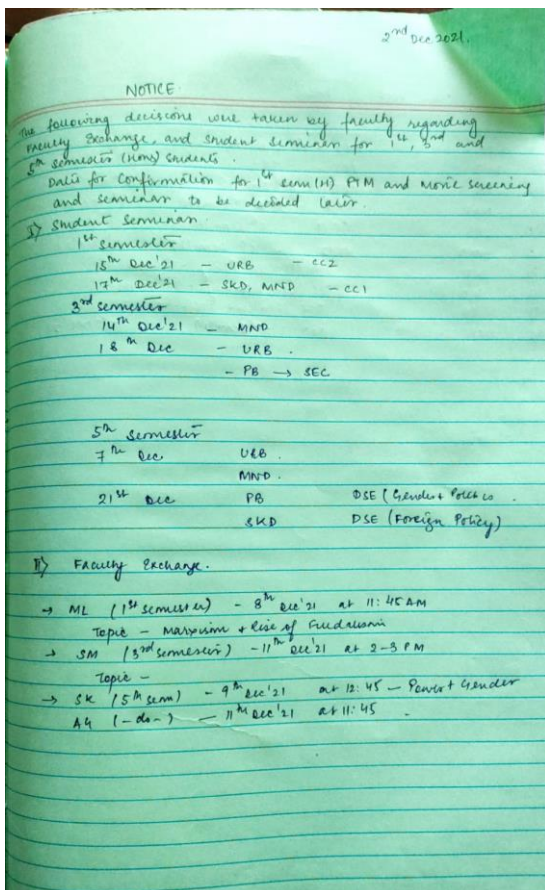 2nd Dec 2021.
NOTICE
The following decisions were taken by faculty regarding
Faculty Exchange, and student seminar for 1st, 3rd and
5th semester (Hons) students.
Dates for confirmation for 1st sem (H) PTM and Movie screening
and seminar to be decided later.
I) Student Seminar.
1st semester
15th Dec'21 - URB - CC2
17th Dec'21 - SKD, MND - CC1
3rd semester
14th Dec'21 - MND
18th Dec - URB.
- PB → SEC
5th semester
7th Dec URB.
MND.
21st Dec PB DSE (Gender + Politics.
SKD DSE (Foreign Policy)
II) Faculty Exchange.
→ ML (1st semester) - 8th Dec'21 at 11:45 AM
Topic - Marxism + Rise of Feudalism
→ SM (3rd semester) - 11th Dec'21 at 2-3 PM
Topic -
→ SK (5th sem) - 9th Dec'21 at 12:45 - Power + Gender
(-do-) - 11th Dec'21 at 11:45